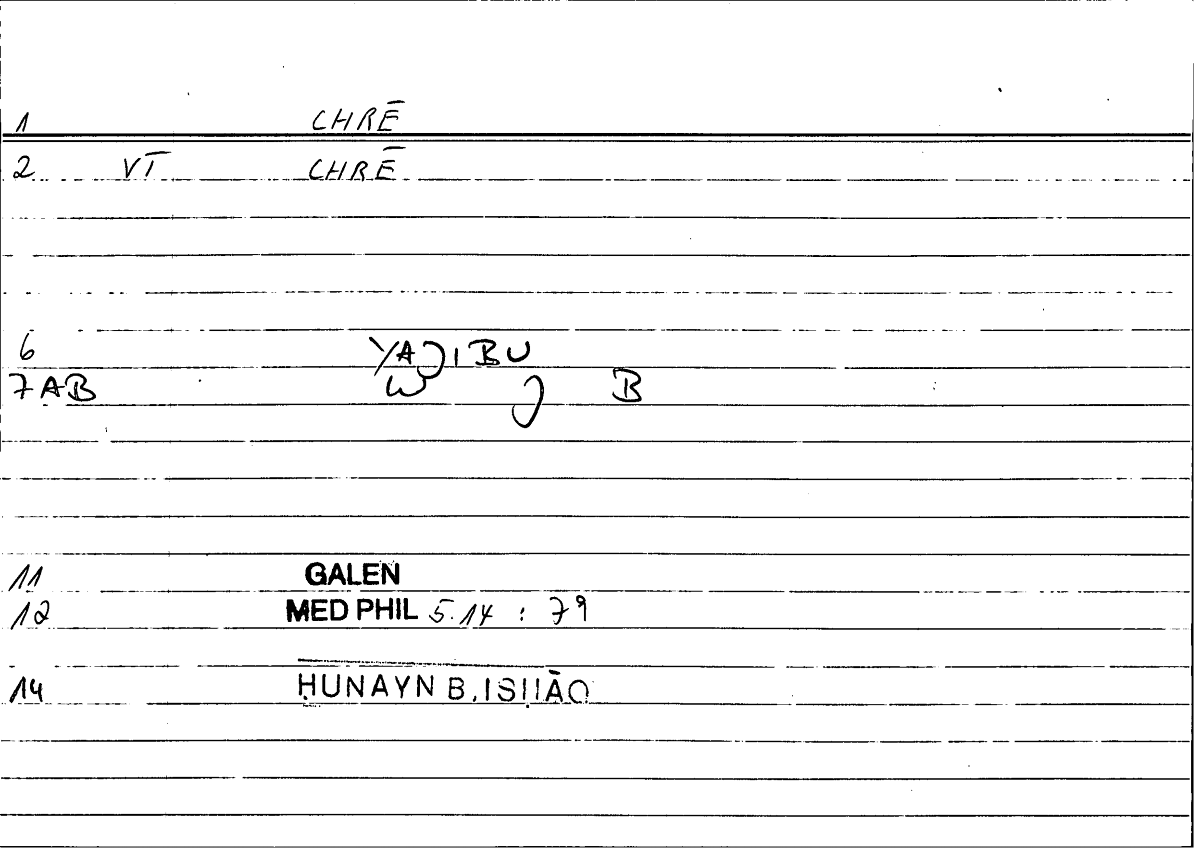 1 CHRĒ
2 VT CHRĒ
6 YAJIBU
7AB W J B
11 GALEN
12 MED PHIL 5.14 : 79
14 ḤUNAYN B. ISḤĀQ